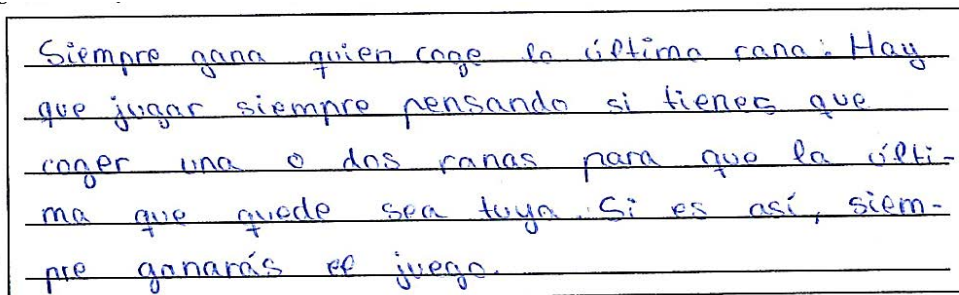 Siempre gana quien coge la última rana. Hay
que jugar siempre pensando si tienes que
coger una o dos ranas para que la últi-
ma que quede sea tuya. Si es así, siem-
pre ganarás el juego.